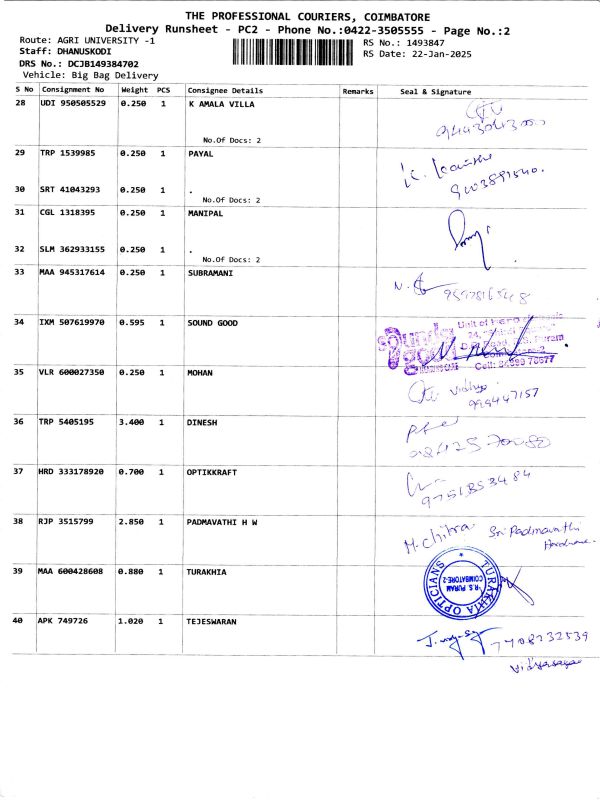 THE PROFESSIONAL COURIERS, COIMBATORE
Delivery Runsheet - PC2 - Phone No.:0422-3505555 - Page No.:2
Route: AGRI UNIVERSITY -1
RS No.: 1493847
Staff: DHANUSKODI
RS Date: 22-Jan-2025
DRS No.: DCJB149384702
Vehicle: Big Bag Delivery
S No Consignment No Weight PCS Consignee Details Remarks Seal & Signature
28 UDI 950505529 0.250 1 K AMALA VILLA
No.Of Docs: 2
29 TRP 1539985 0.250 1 PAYAL
30 SRT 41043293 0.250 1 .
No.Of Docs: 2
31 CGL 1318395 0.250 1 MANIPAL
32 SLM 362933155 0.250 1 .
No.Of Docs: 2
33 MAA 945317614 0.250 1 SUBRAMANI
34 IXM 507619970 0.595 1 SOUND GOOD
Unit of
35 VLR 600027350 0.250 1 MOHAN
Vidhya
999447157
36 TRP 5405195 3.400 1 DINESH
37 HRD 333178920 0.700 1 OPTIKKRAFT
9751853484
38 RJP 3515799 2.850 1 PADMAVATHI H W
M. Chitra Sri Padmavathi
Hardware
39 MAA 600428608 0.880 1 TURAKHIA
TURAKHIA OPTICIANS
R.S. PURAM
COIMBATORE-2
40 APK 749726 1.020 1 TEJESWARAN
7708232539
Vidyasagar